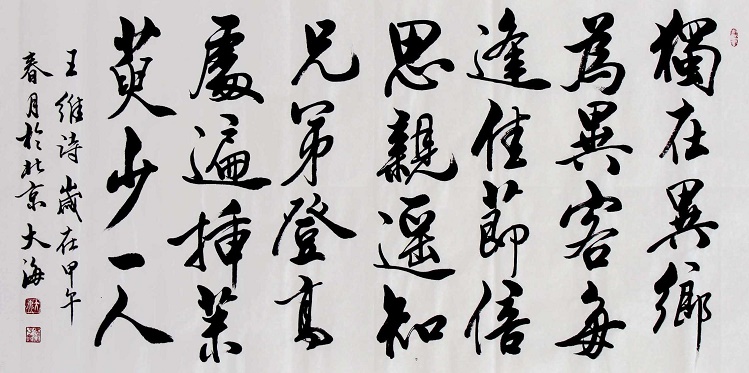 獨在異鄉
為異客每
逢佳節倍
思親遥知
兄弟登高
處遍插茱
萸少一人
王維诗歲在甲午
春月於北京大海